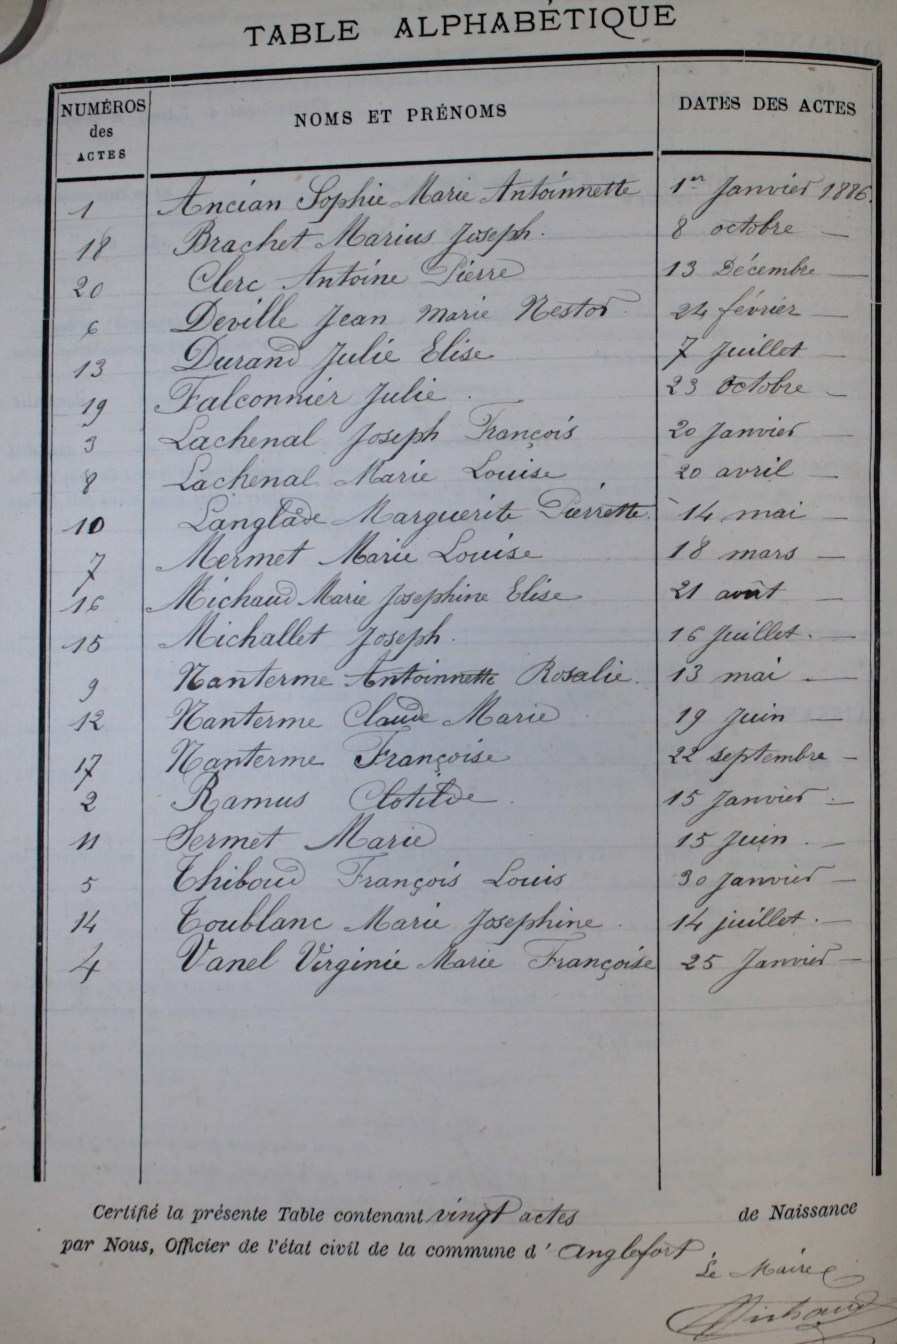 TABLE ALPHABÉTIQUE
NUMÉROS des ACTES NOMS ET PRÉNOMS DATES DES ACTES
1 Ancian Sophie Marie Antoinnette 1er Janvier 1886.
18 Brachet Marius Joseph. 8 octobre —
20 Clerc Antoine Pierre 13 Décembre —
6 Deville Jean Marie Nestor 24 février —
13 Durand Julie Elise 7 Juillet —
19 Falconnier Julie. 23 Octobre —
3 Lachenal Joseph François 20 Janvier —
8 Lachenal Marie Louise 20 avril —
10 Langlade Marguerite Pierrette. 14 mai —
7 Mermet Marie Louise 18 mars —
16 Michaud Marie Josephine Elise 21 août —
15 Michallet Joseph. 16 Juillet. —
9 Nanterme Antoinnette Rosalie. 13 mai. —
12 Nanterme Claude Marie 19 Juin —
17 Nanterme Françoise 22 septembre —
2 Ramus Clotilde. 15 Janvier. —
11 Sermet Marie 15 Juin. —
5 Thiboud François Louis 30 Janvier —
14 Toublanc Marie Josephine. 14 juillet. —
4 Vanel Virginie Marie Françoise 25 Janvier —
Certifié la présente Table contenant vingt actes de Naissance
par Nous, Officier de l'état civil de la commune d' Anglefort
Le Maire
Michaud